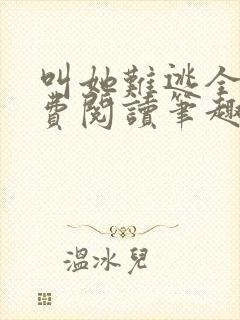 叫她難逃全
費閱讀筆趣
溫冰兒